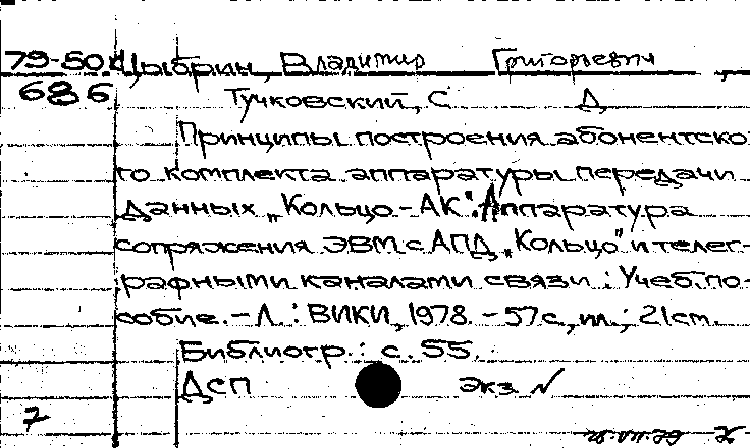 79-50к Цыбрин, Владимир Григорьевич,
686 Тучковский, С Д
Принципы построения абонентско
го комплекта аппаратуры передачи
данных „Кольцо-АК“. Аппаратура
сопряжения ЭВМ с АПД „Кольцо“ и телег-
рафными каналами связи : Учеб. по-
собие. – Л. : ВИКИ, 1978. – 57с., ил.; 21см.
Библиогр.: с. 55.
ДСП экз №
7